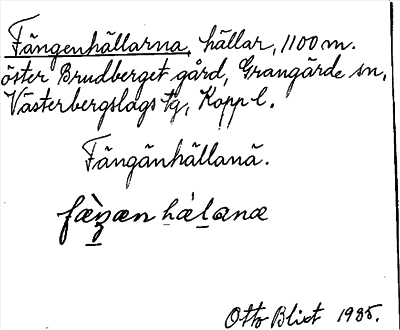 Fängenhällarna, hällar, 1100 m.
öster Brudberget gård, Grangärde sn,
Västerbergslags tg, Kopp l.
Fängänhällanä.
Otto Blixt 1935.